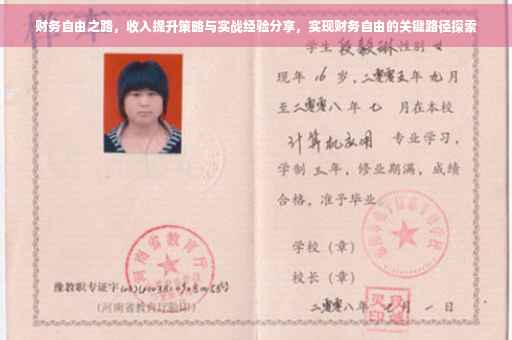 财务自由之路，收入提升策略与实战经验分享，实现财务自由的关键路径探索
学生 段毅琳 性别 女
现年 16 岁，二零零五年 九月
至二零零八年 七 月在本校
计算机应用 专业学习，
学制 三 年，修业期满，成绩
合格，准予毕业。
学校（章）
校长（章）
二零零八年 七 月 一 日
河南省教育厅
豫教职专证字
（河南省教育厅验印）